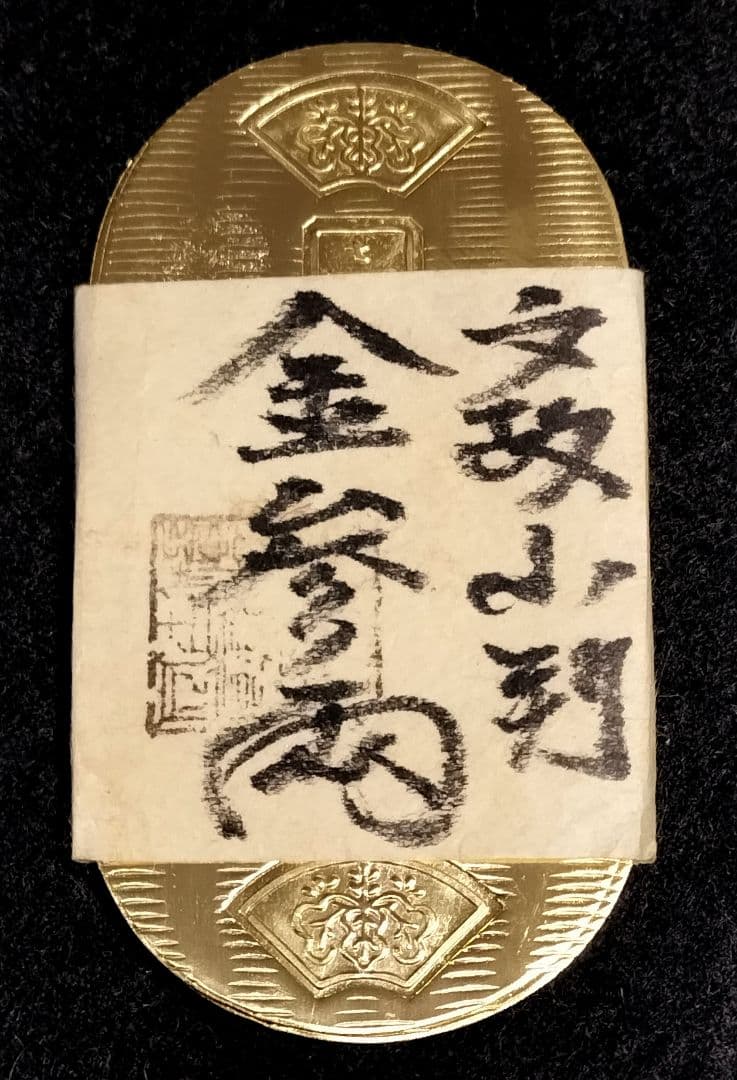 文政小判
金参両